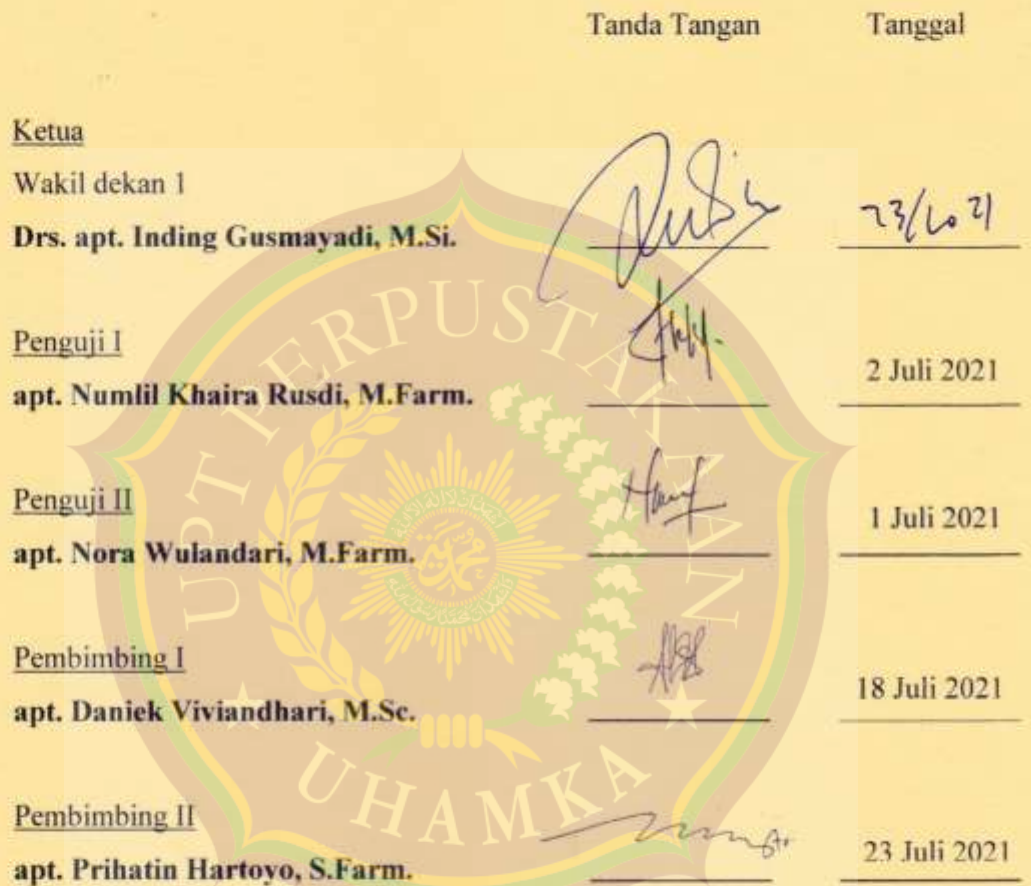 Tanda Tangan Tanggal
Ketua
Wakil dekan 1
Drs. apt. Inding Gusmayadi, M.Si.
Penguji I
apt. Numlil Khaira Rusdi, M.Farm. 2 Juli 2021
Penguji II
apt. Nora Wulandari, M.Farm. 1 Juli 2021
Pembimbing I
apt. Daniek Viviandhari, M.Sc. 18 Juli 2021
Pembimbing II
apt. Prihatin Hartoyo, S.Farm. 23 Juli 2021
UPT PERPUSTAKAAN
UHAMKA